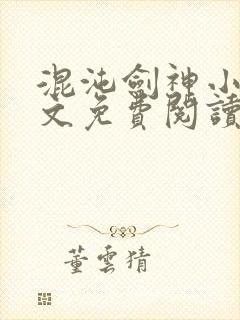 混沌劍神小
文免費閱讀
董雲猜